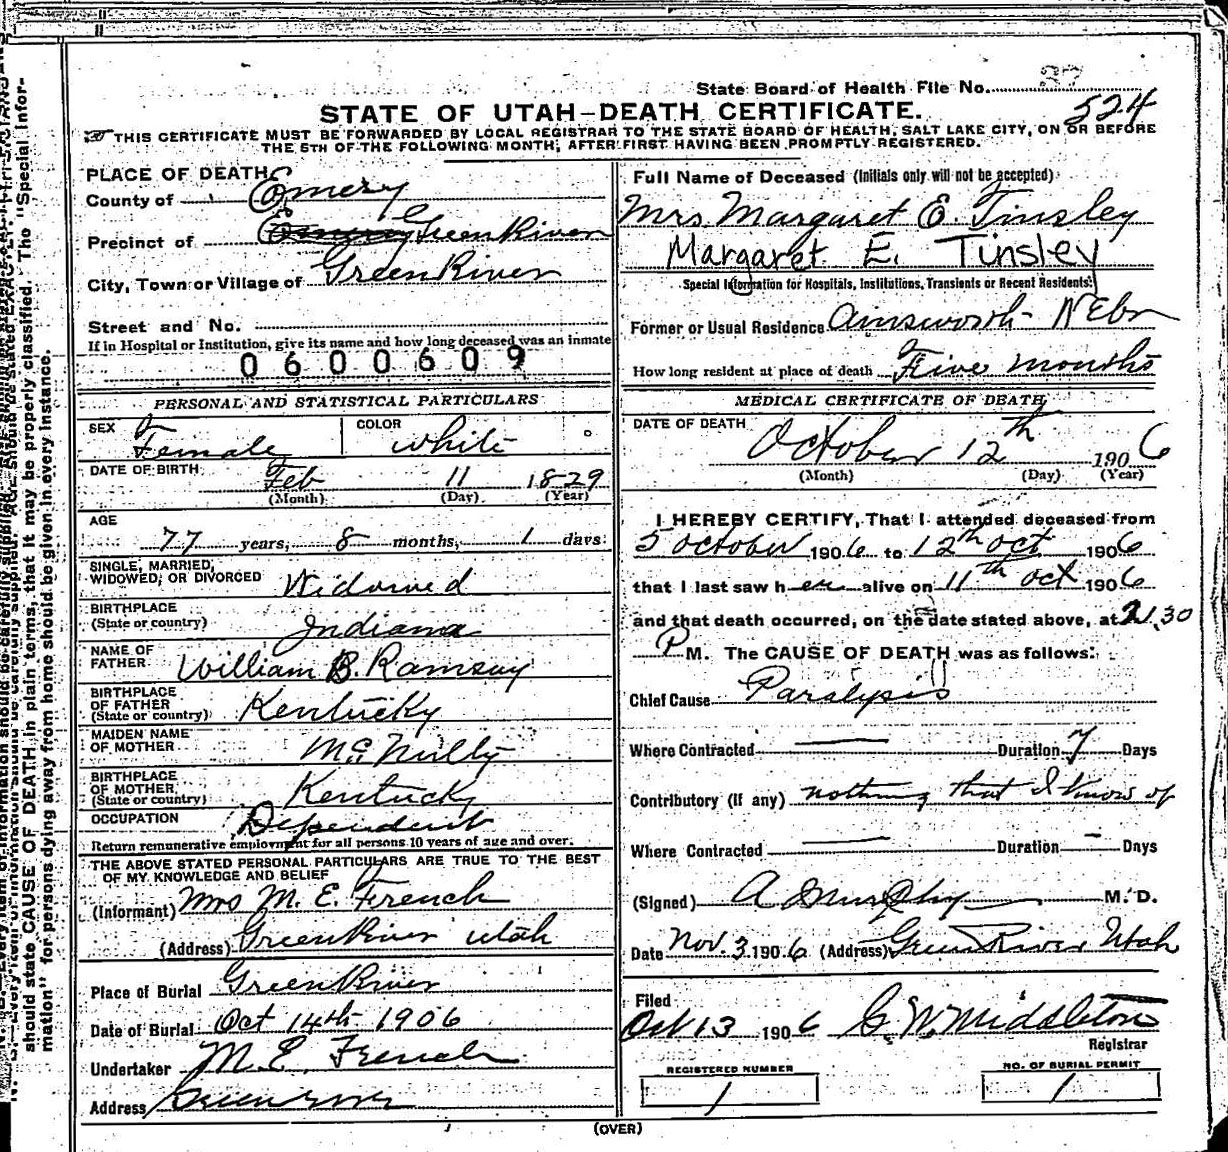 State Board of Health File No. 37
524
STATE OF UTAH—DEATH CERTIFICATE.
THIS CERTIFICATE MUST BE FORWARDED BY LOCAL REGISTRAR TO THE STATE BOARD OF HEALTH, SALT LAKE CITY, ON OR BEFORE
THE 5TH OF THE FOLLOWING MONTH, AFTER FIRST HAVING BEEN PROMPTLY REGISTERED.
PLACE OF DEATH
County of Emery
Precinct of Emery Green River
City, Town or Village of Green River
Street and No.
If in Hospital or Institution, give its name and how long deceased was an inmate
0600609
PERSONAL AND STATISTICAL PARTICULARS
SEX Female COLOR White
DATE OF BIRTH Feb 11 1829
(Month) (Day) (Year)
AGE
77 years, 8 months, 1 days
SINGLE, MARRIED,
WIDOWED, OR DIVORCED Widowed
BIRTHPLACE
(State or country) Indiana
NAME OF
FATHER William B. Ramsay
BIRTHPLACE
OF FATHER
(State or country) Kentucky
MAIDEN NAME
OF MOTHER McNully
BIRTHPLACE
OF MOTHER
(State or country) Kentucky
OCCUPATION Dependent
Return remunerative employment for all persons 10 years of age and over.
THE ABOVE STATED PERSONAL PARTICULARS ARE TRUE TO THE BEST
OF MY KNOWLEDGE AND BELIEF
(Informant) Mrs M. E. French
(Address) Green River Utah
Place of Burial Green River
Date of Burial Oct 14th 1906
Undertaker M. E. French
Address Greenriver
Full Name of Deceased (Initials only will not be accepted)
Mrs. Margaret E. Tinsley
Margaret E. Tinsley
Special Information for Hospitals, Institutions, Transients or Recent Residents:
Former or Usual Residence Ainsworth Nebr
How long resident at place of death Five months
MEDICAL CERTIFICATE OF DEATH
DATE OF DEATH October 12th 1906
(Month) (Day) (Year)
I HEREBY CERTIFY, That I attended deceased from
5 October 1906 to 12th Oct 1906
that I last saw her alive on 11th Oct 1906
and that death occurred, on the date stated above, at 1.30
P M. The CAUSE OF DEATH was as follows:
Chief Cause Paralysis
Where Contracted — Duration 7 Days
Contributory (if any) nothing that I know of
Where Contracted — Duration - Days
(Signed) A Murphy M. D.
Date Nov. 3 1906 (Address) Green River Utah
Filed
Oct 13 1906 C. W. Middleton
Registrar
REGISTERED NUMBER
1
NO. OF BURIAL PERMIT
1
(OVER)
should state CAUSE OF DEATH in plain terms, that it may be properly classified. The "Special Infor-
mation" for persons dying away from home should be given in every instance.